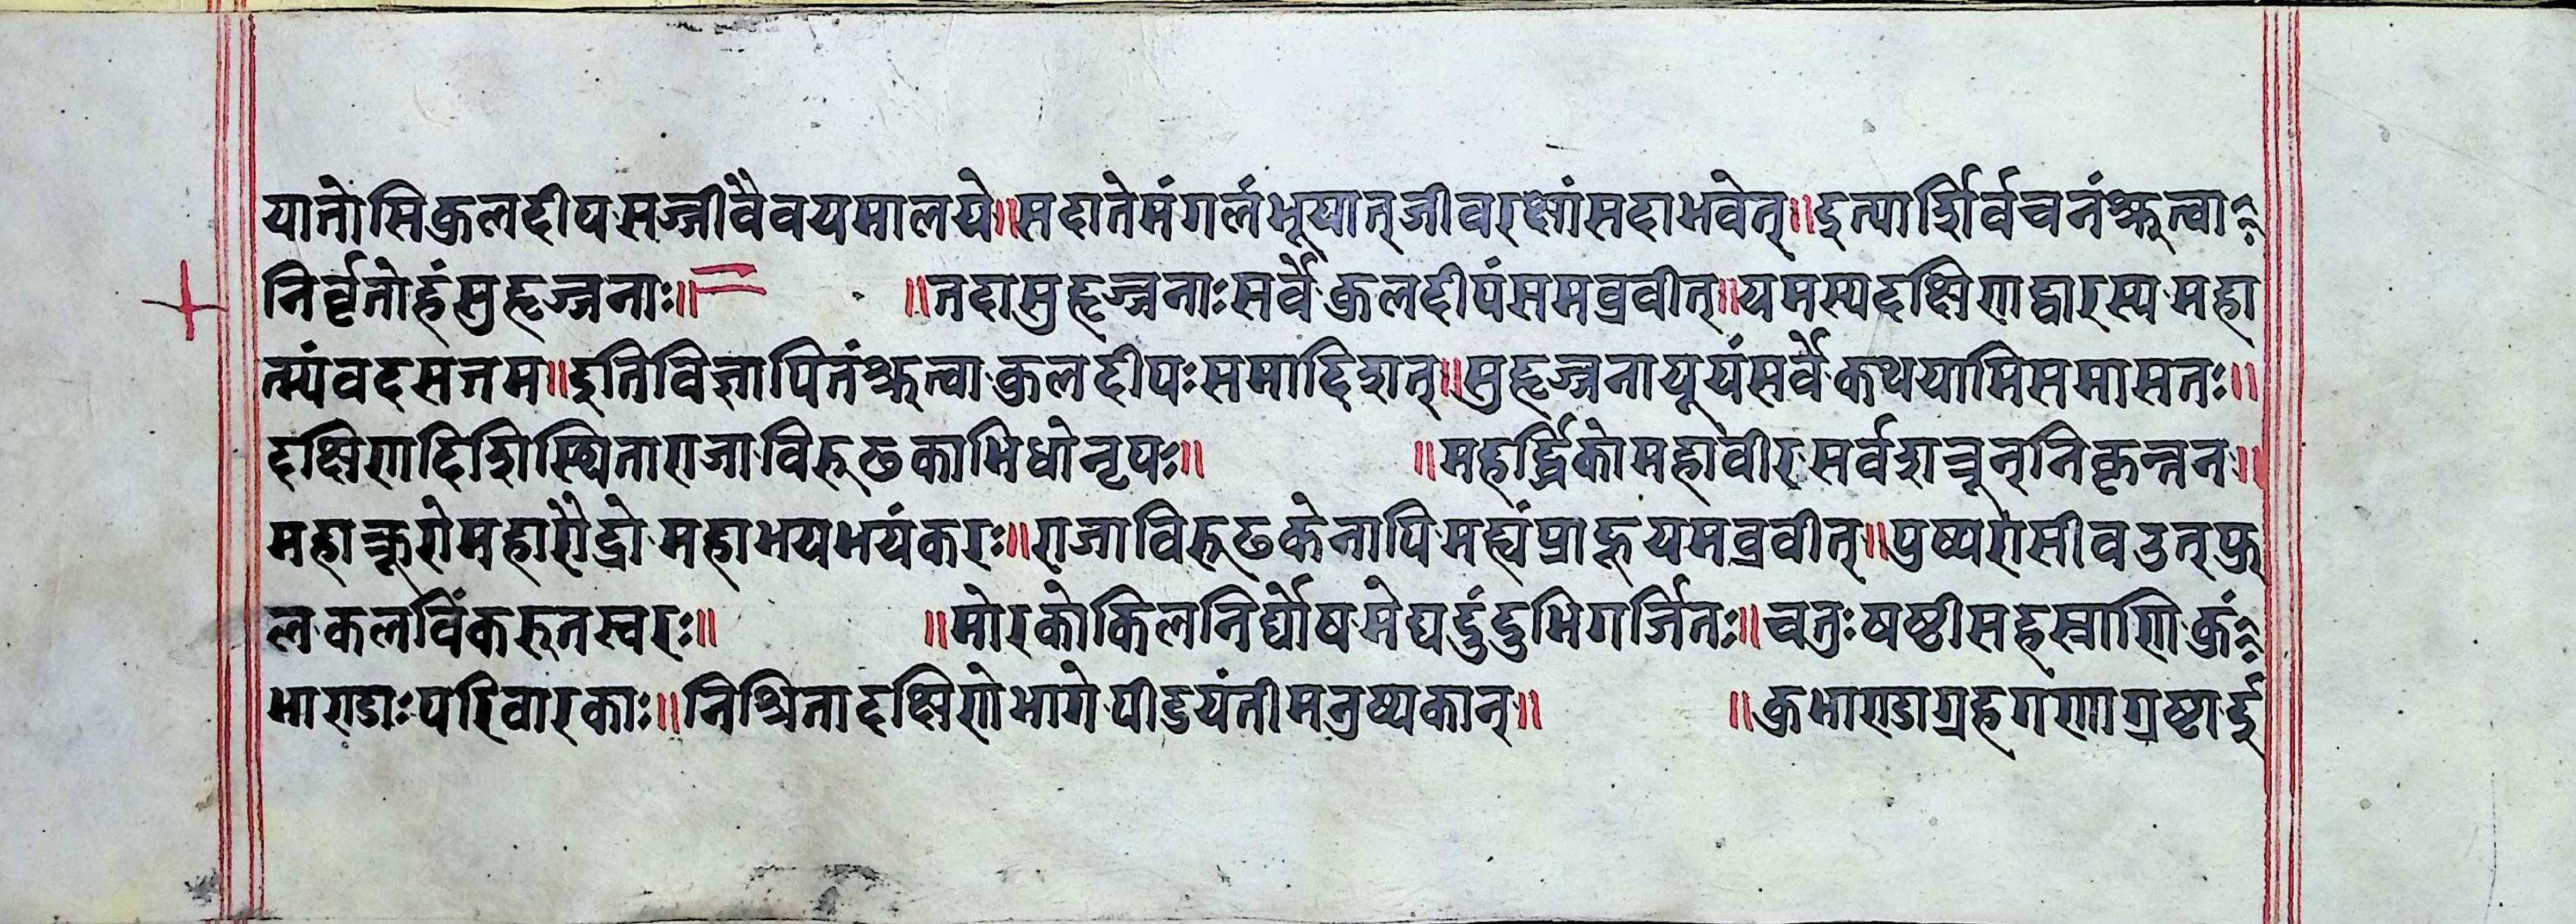 यातोसिकुलदीपसज्जीवैवयमालये॥सदातेमंगलंभूयात्जीवरक्षांसदाभवेत्॥इत्यार्शिर्वचनंश्रुत्वा
निर्वृतोहंसुहृज्जनाः॥ ॥तदासुहृज्जनाःसर्वेकुलदीपंसमब्रवीत्॥यमस्यदक्षिणद्वारस्यमहा
त्म्यंवदसत्तम॥इतिविज्ञापितंश्रुत्वाकुलदीपःसमादिशत्॥सुहृज्जनायूयंसर्वेकथयामिसमासतः॥
दक्षिणदिशिस्थिताराजाविरूढकाभिधोनृपः॥ ॥महर्द्धिकोमहावीरसर्वशत्रून्निकृन्तन॥
महाक्रूरोमहारौद्रोमहाभयभयंकरः॥राजाविरूढकेनापिमह्यंप्राहूयमब्रवीत्॥पुष्परासीवउत्फु
लकलविंकरुतस्वरः॥ ॥मोरकोकिलनिर्घोषमेघदुंदुभिगर्जितः॥चतुःषष्ठीसहस्राणिकुं
भाण्डाःपरिवारकाः॥निश्रितादक्षिणेभागेपीडयंतीमनुष्यकान्॥ ॥कुभाण्डाग्रहगणाग्रष्टार्दु